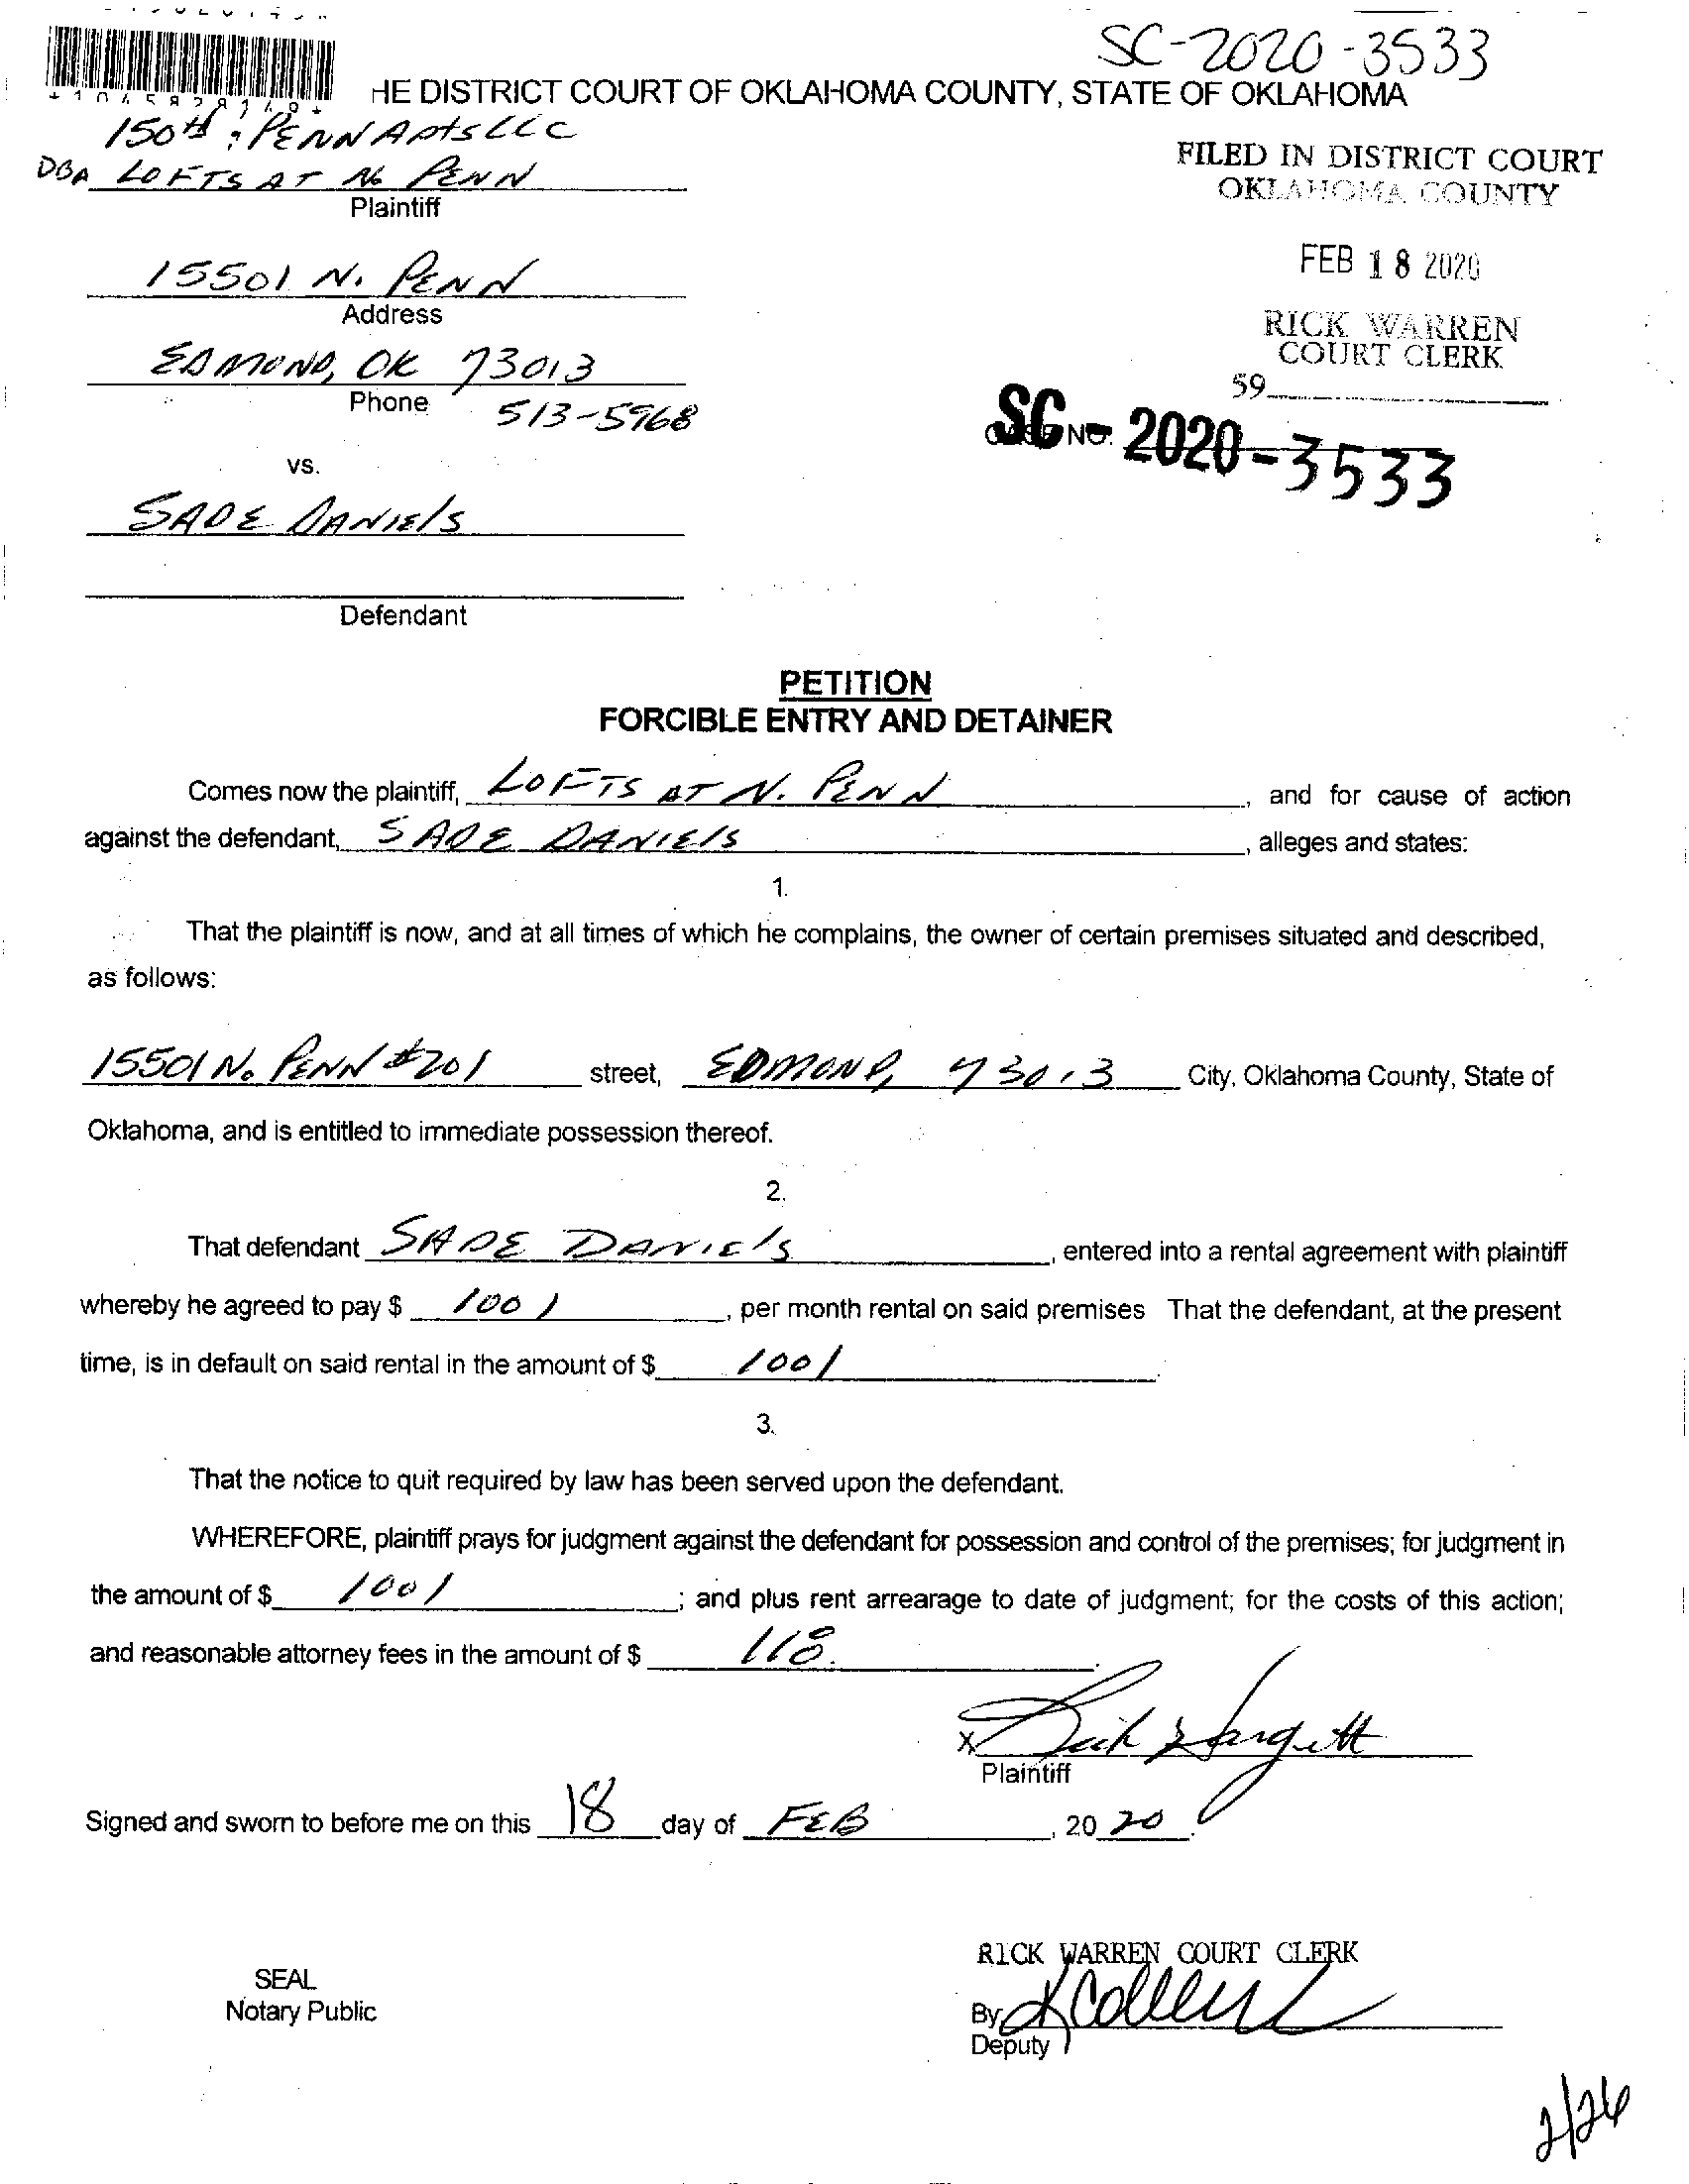 SC-2020-3533
HE DISTRICT COURT OF OKLAHOMA COUNTY, STATE OF OKLAHOMA
150th & PENN Apts LLC
DBA LOFTS AT N. PENN
Plaintiff
FILED IN DISTRICT COURT
OKLAHOMA COUNTY
15501 N. PENN
Address
FEB 18 2020
RICK WARREN
COURT CLERK
EDMOND, OK 73013
Phone 513-5968
59
CASE NO.
SC-2020-3533
vs.
SADE DANIELS
Defendant
PETITION
FORCIBLE ENTRY AND DETAINER
Comes now the plaintiff, LOFTS AT N. PENN, and for cause of action
against the defendant, SADE DANIELS, alleges and states:
1.
That the plaintiff is now, and at all times of which he complains, the owner of certain premises situated and described,
as follows:
15501 N. PENN #201 street, EDMOND, 73013 City, Oklahoma County, State of
Oklahoma, and is entitled to immediate possession thereof.
2.
That defendant SADE DANIELS, entered into a rental agreement with plaintiff
whereby he agreed to pay $ 1001, per month rental on said premises That the defendant, at the present
time, is in default on said rental in the amount of $ 1001.
3.
That the notice to quit required by law has been served upon the defendant.
WHEREFORE, plaintiff prays for judgment against the defendant for possession and control of the premises; for judgment in
the amount of $ 1001; and plus rent arrearage to date of judgment; for the costs of this action;
and reasonable attorney fees in the amount of $ 118.
X Hargett
Plaintiff
Signed and sworn to before me on this 18 day of FEB, 2020.
RICK WARREN COURT CLERK
SEAL
Notary Public
By
Deputy
2/26